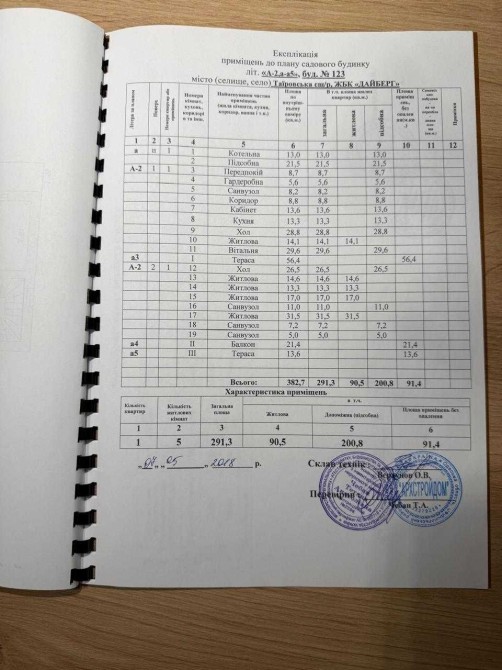 Експлікація
приміщень до плану садового будинку
літ. «А-2,а-а5», буд. № 123
місто (селище, село) Таїровська сш/р, ЖБК «ДАЙБЕРГ»
Літера за планом Поверх Номери кімнат, кухонь, коридорів та інш. Найменування частин приміщень (житла кімната, кухня, коридор, ванна і т.п.) Площа по внутрішньому виміру (кв.м.) В т.ч. площа житлових квартир (кв.м.) загальна житлова Примітки
1 2 3 4 5 6 7 8 9 10 11 12
а п 1 1 Котельна 13,0 13,0 13,0
2 Підсобна 21,5 21,5 21,5
А-2 1 1 3 Передпокій 8,7 8,7 8,7
4 Гардеробна 5,6 5,6 5,6
5 Санвузол 8,2 8,2 8,2
6 Коридор 8,8 8,8 8,8
7 Кабінет 13,6 13,6 13,6
8 Кухня 13,3 13,3 13,3
9 Хол 28,8 28,8 28,8
10 Житлова 14,1 14,1 14,1
11 Вітальня 29,6 29,6 29,6
а3 I Тераса 56,4 56,4
А-2 2 1 12 Хол 26,5 26,5 26,5
13 Житлова 14,6 14,6 14,6
14 Житлова 13,3 13,3 13,3
15 Житлова 17,0 17,0 17,0
16 Санвузол 11,0 11,0 11,0
17 Житлова 31,5 31,5 31,5
18 Санвузол 7,2 7,2 7,2
19 Санвузол 5,0 5,0 5,0
а4 II Балкон 21,4 21,4
а5 III Тераса 13,6 13,6
Всього: 382,7 291,3 90,5 200,8 91,4
Характеристика приміщень
Кількість квартир Кількість житлових кімнат Загальна площа в т.ч. Житлова Допоміжна (підсобна) Площа приміщень без опалення
1 2 3 4 5 6
1 5 291,3 90,5 200,8 91,4
„07„ „05„ 2018 р. Склав технік :
О.В.
Перевірив : "АРКСТРОЙДОМ"
Т.А.